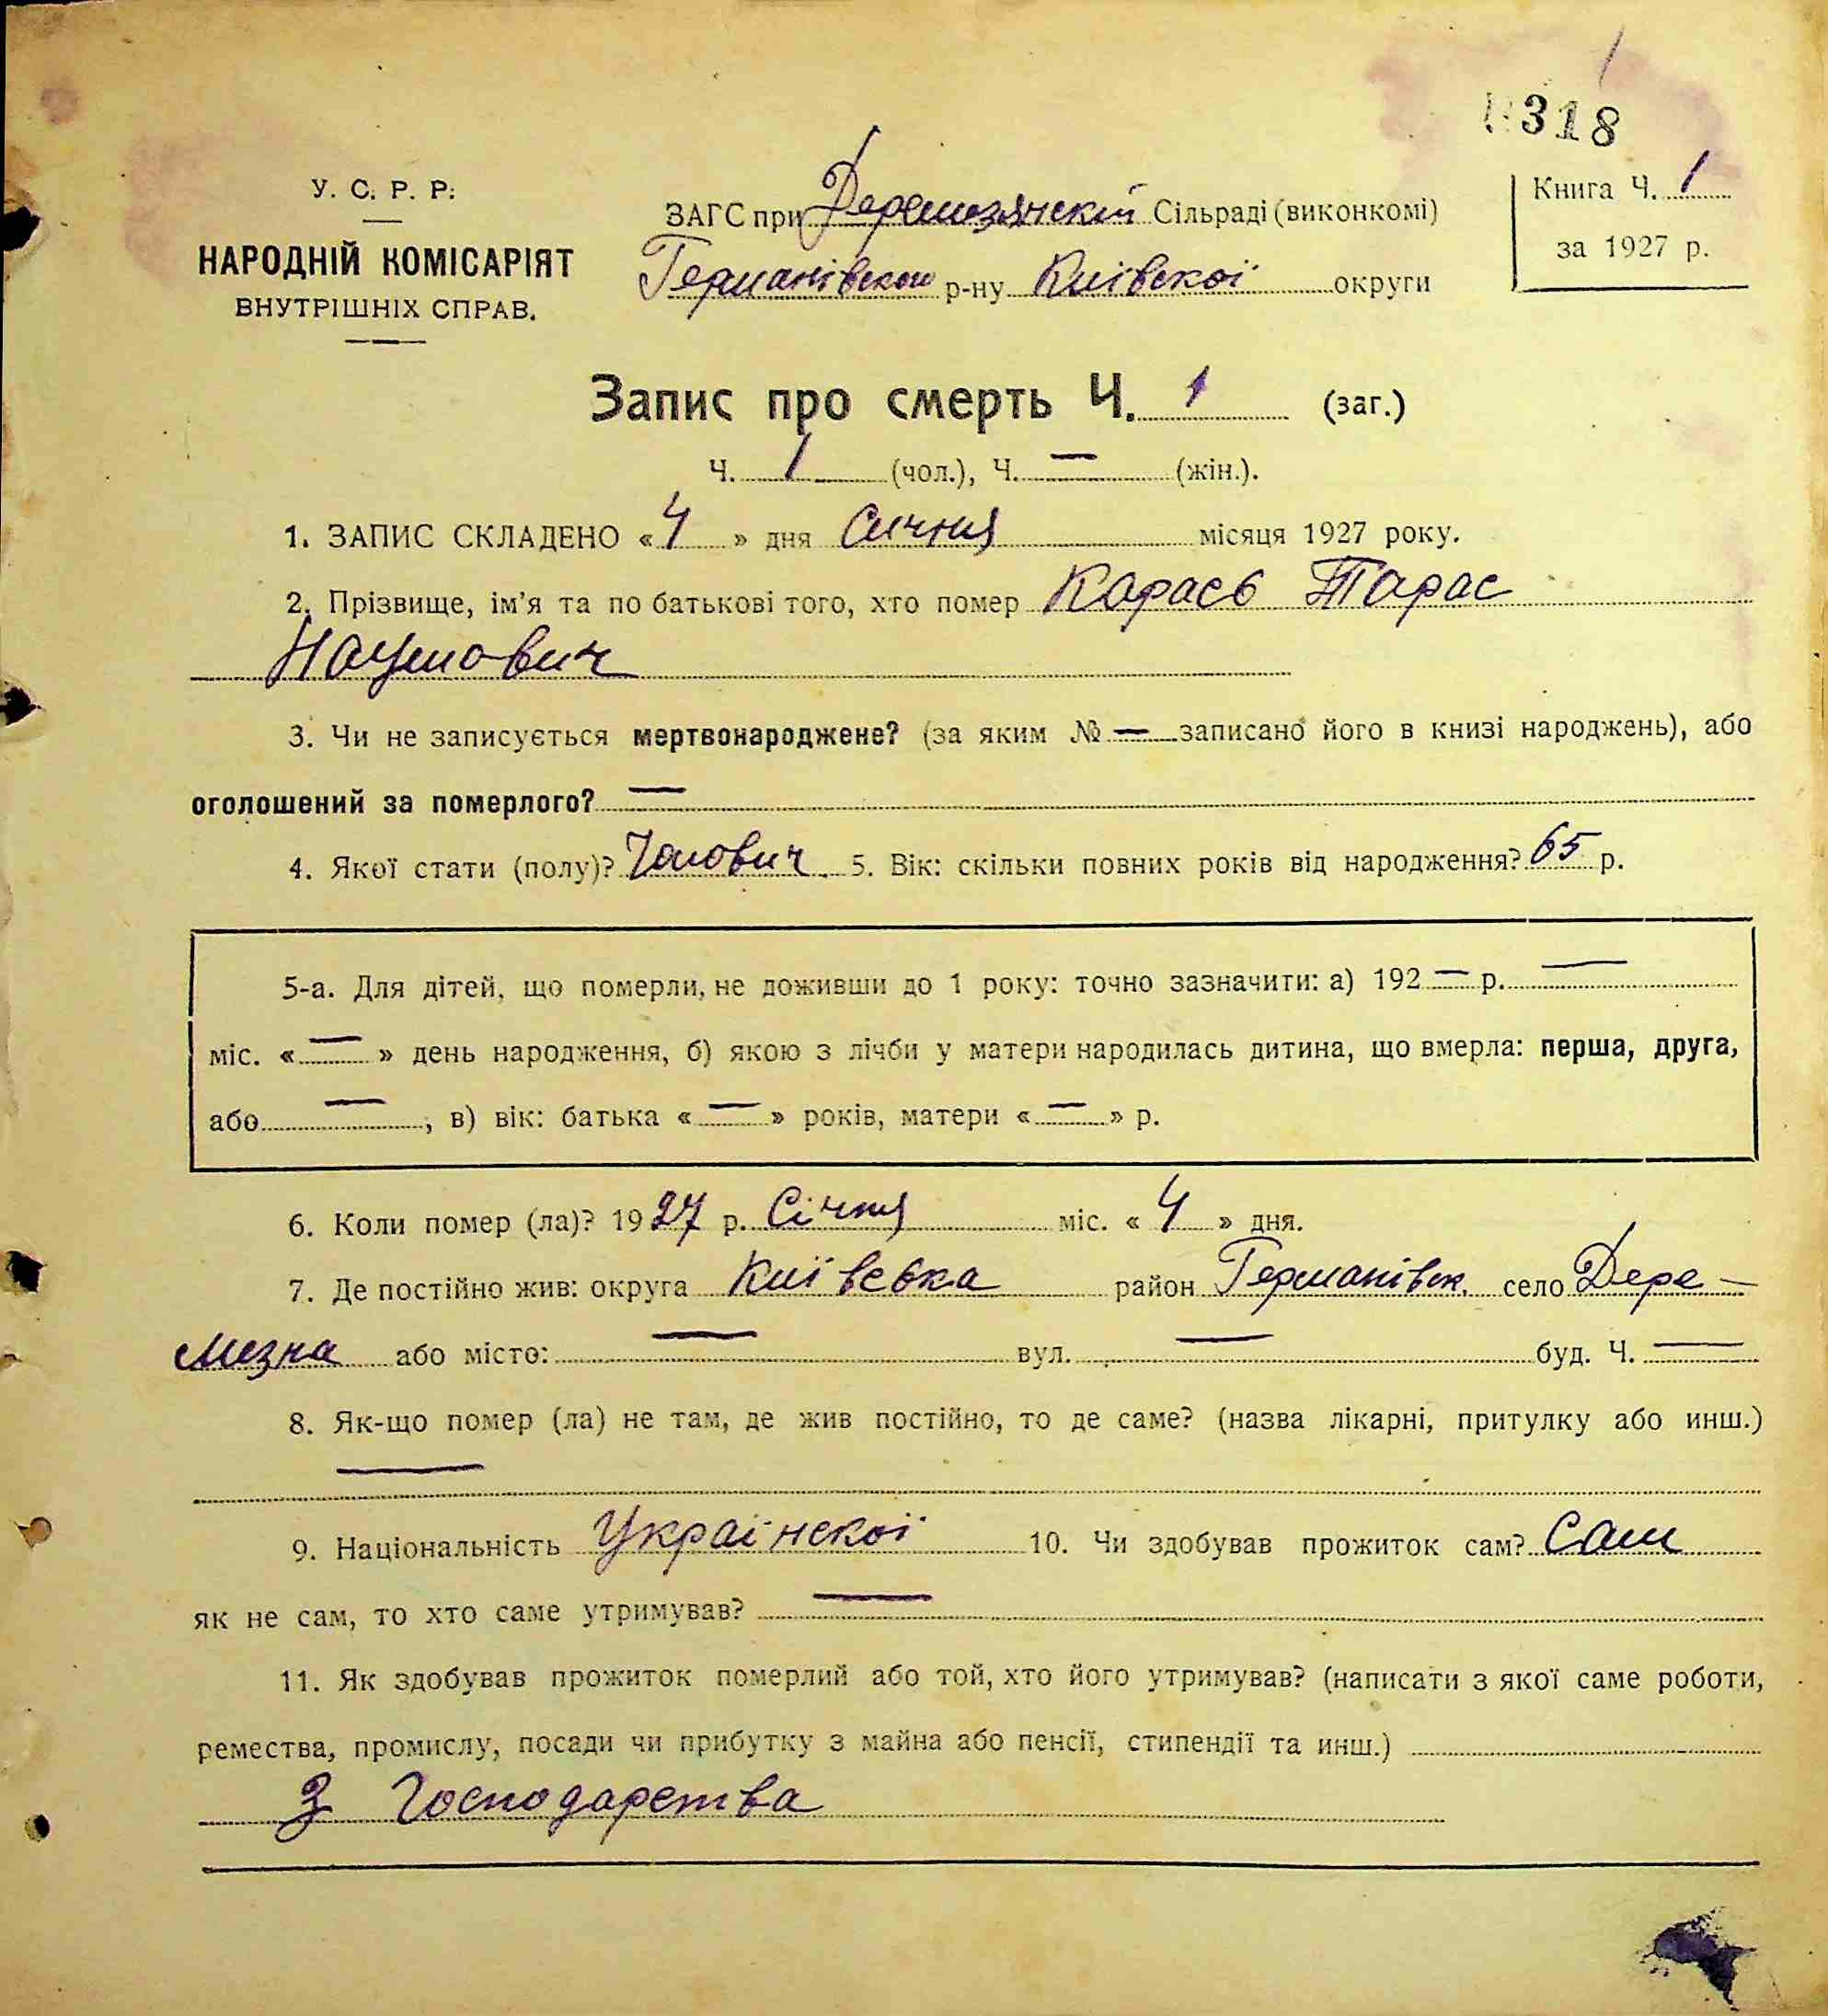 318
У. С. Р. Р.
НАРОДНІЙ КОМІСАРІЯТ
ВНУТРІШНІХ СПРАВ.
ЗАГС при Деремезянскій Сільраді (виконкомі)
Германівскои р-ну Київскої округи
Книга Ч. 1
за 1927 р.
Запис про смерть Ч. 1 (заг.)
Ч. 1 (чол.), Ч. — (жін.).
1. ЗАПИС СКЛАДЕНО «4» дня Січня місяця 1927 року.
2. Прізвище, ім'я та по батькові того, хто помер Карась Тарас
Наумович
3. Чи не записується мертвонароджене? (за яким № — записано його в книзі народжень), або
оголошений за померлого? —
4. Якої стати (полу)? Чолович. 5. Вік: скільки повних років від народження? 65 р.
5-а. Для дітей, що померли, не доживши до 1 року: точно зазначити: а) 192 — р. —
міс. « — » день народження, б) якою з лічби у матери народилась дитина, що вмерла: перша, друга,
або — , в) вік: батька « — » років, матери « — » р.
6. Коли помер (ла)? 1927 р. Січня міс. «4» дня.
7. Де постійно жив: округа Київська район Германівск. село Дере-
мезна або місто: — вул. — буд. Ч. —
8. Як-що помер (ла) не там, де жив постійно, то де саме? (назва лікарні, притулку або инш.)
—
9. Національність Українскої 10. Чи здобував прожиток сам? Сам
як не сам, то хто саме утримував? —
11. Як здобував прожиток померлий або той, хто його утримував? (написати з якої саме роботи,
ремества, промислу, посади чи прибутку з майна або пенсії, стипендії та инш.)
З Господарства